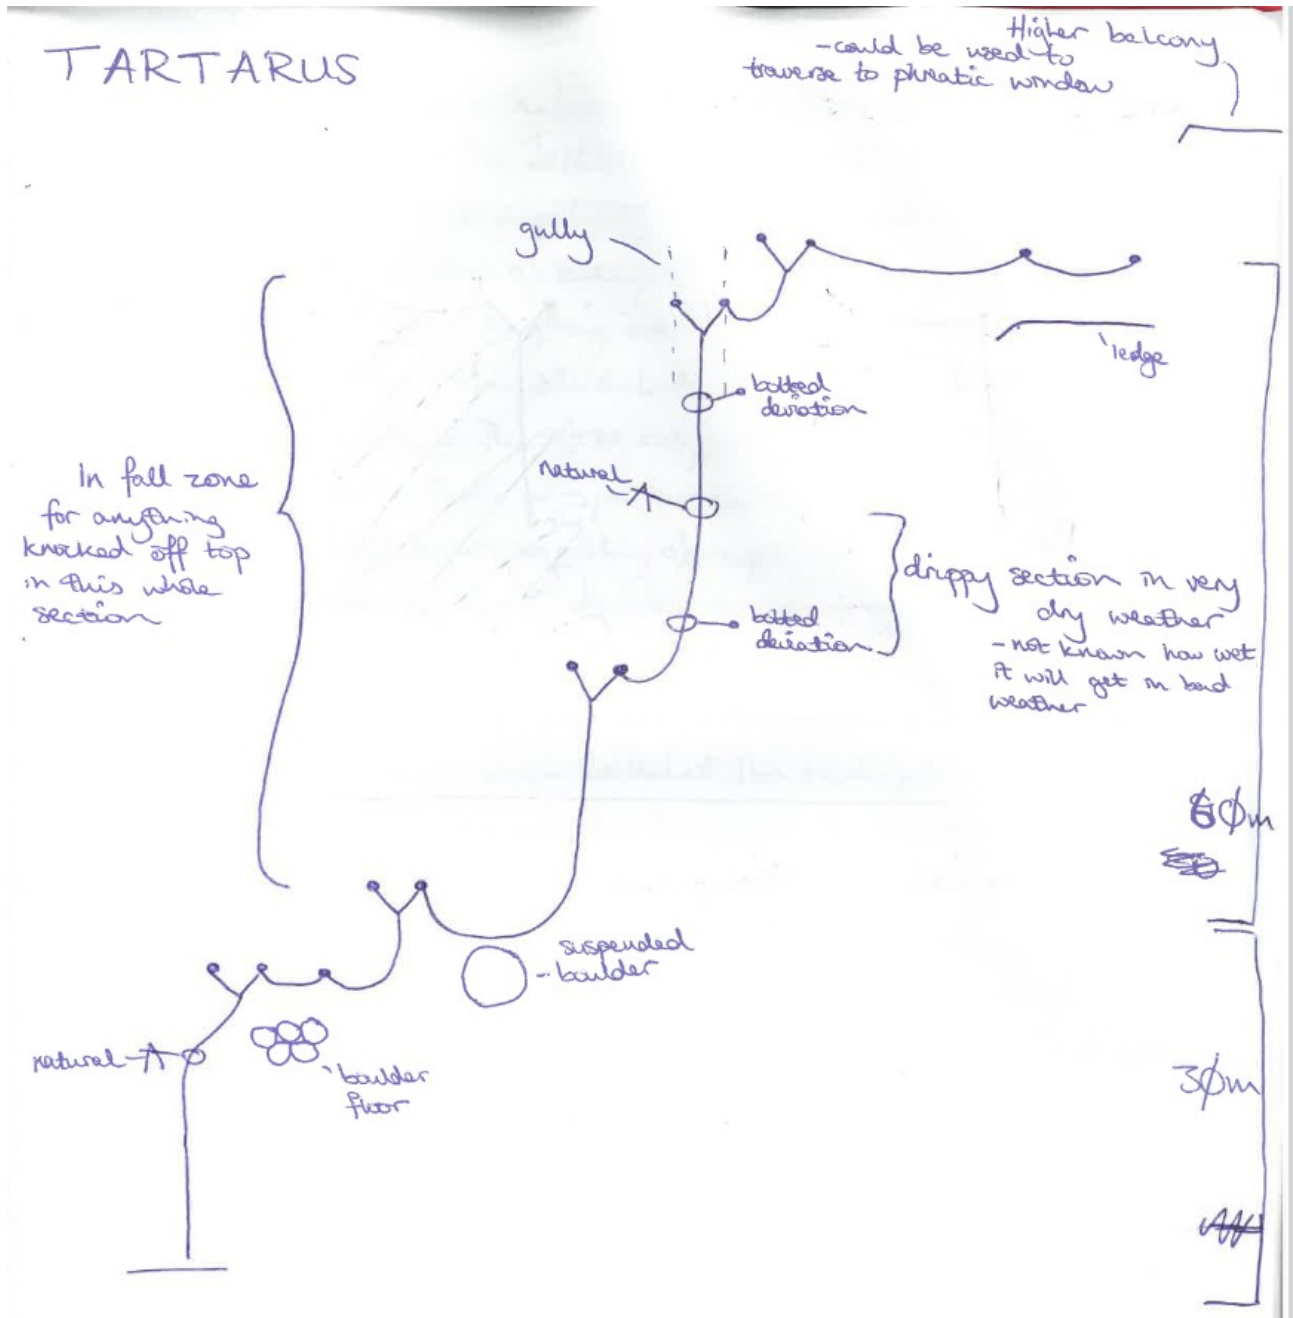 TARTARUS
Higher balcony
-could be used to
traverse to phreatic window
gully
ledge
bolted
deviation
natural
In fall zone
for anything
knocked off top
in this whole
section
drippy section in very
dry weather
- not known how wet
it will get in bad
weather
bolted
deviation
60m
suspended
boulder
natural
boulder
floor
30m